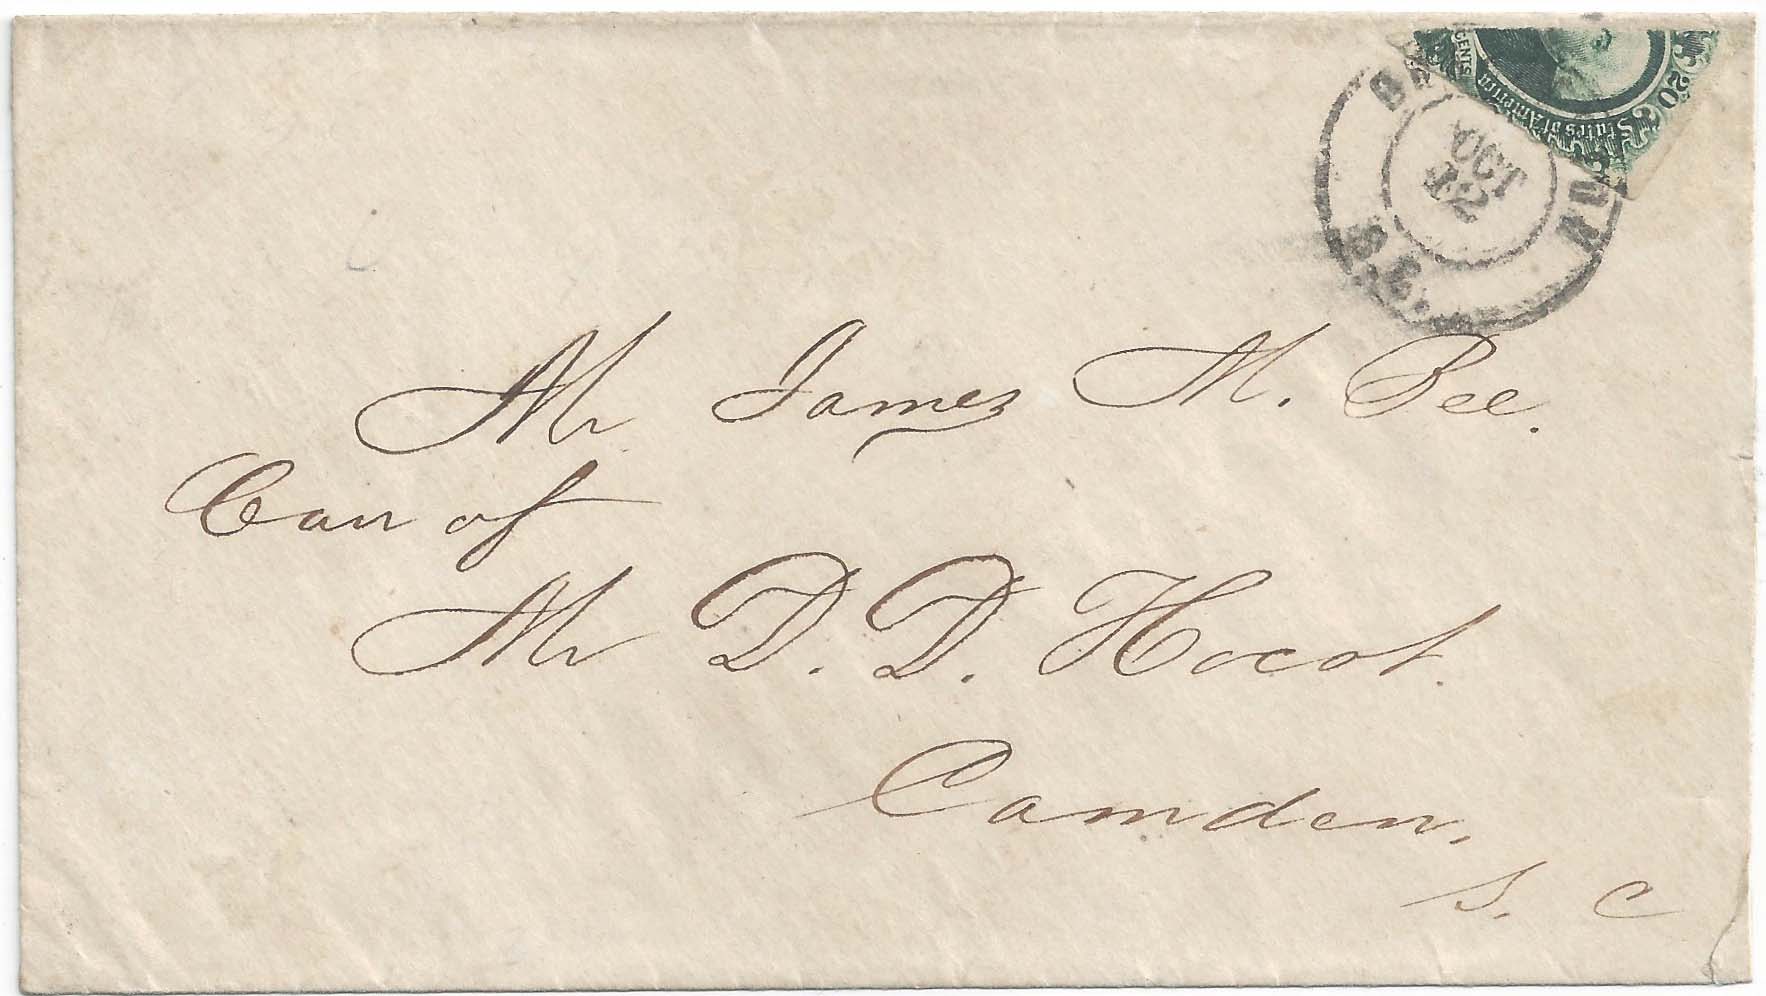 CENTS
States of America
20 C
OCT
12
S.C.
Mr James M. Bee.
Care of
Mr D. D. Hocot.
Camden,
S. C